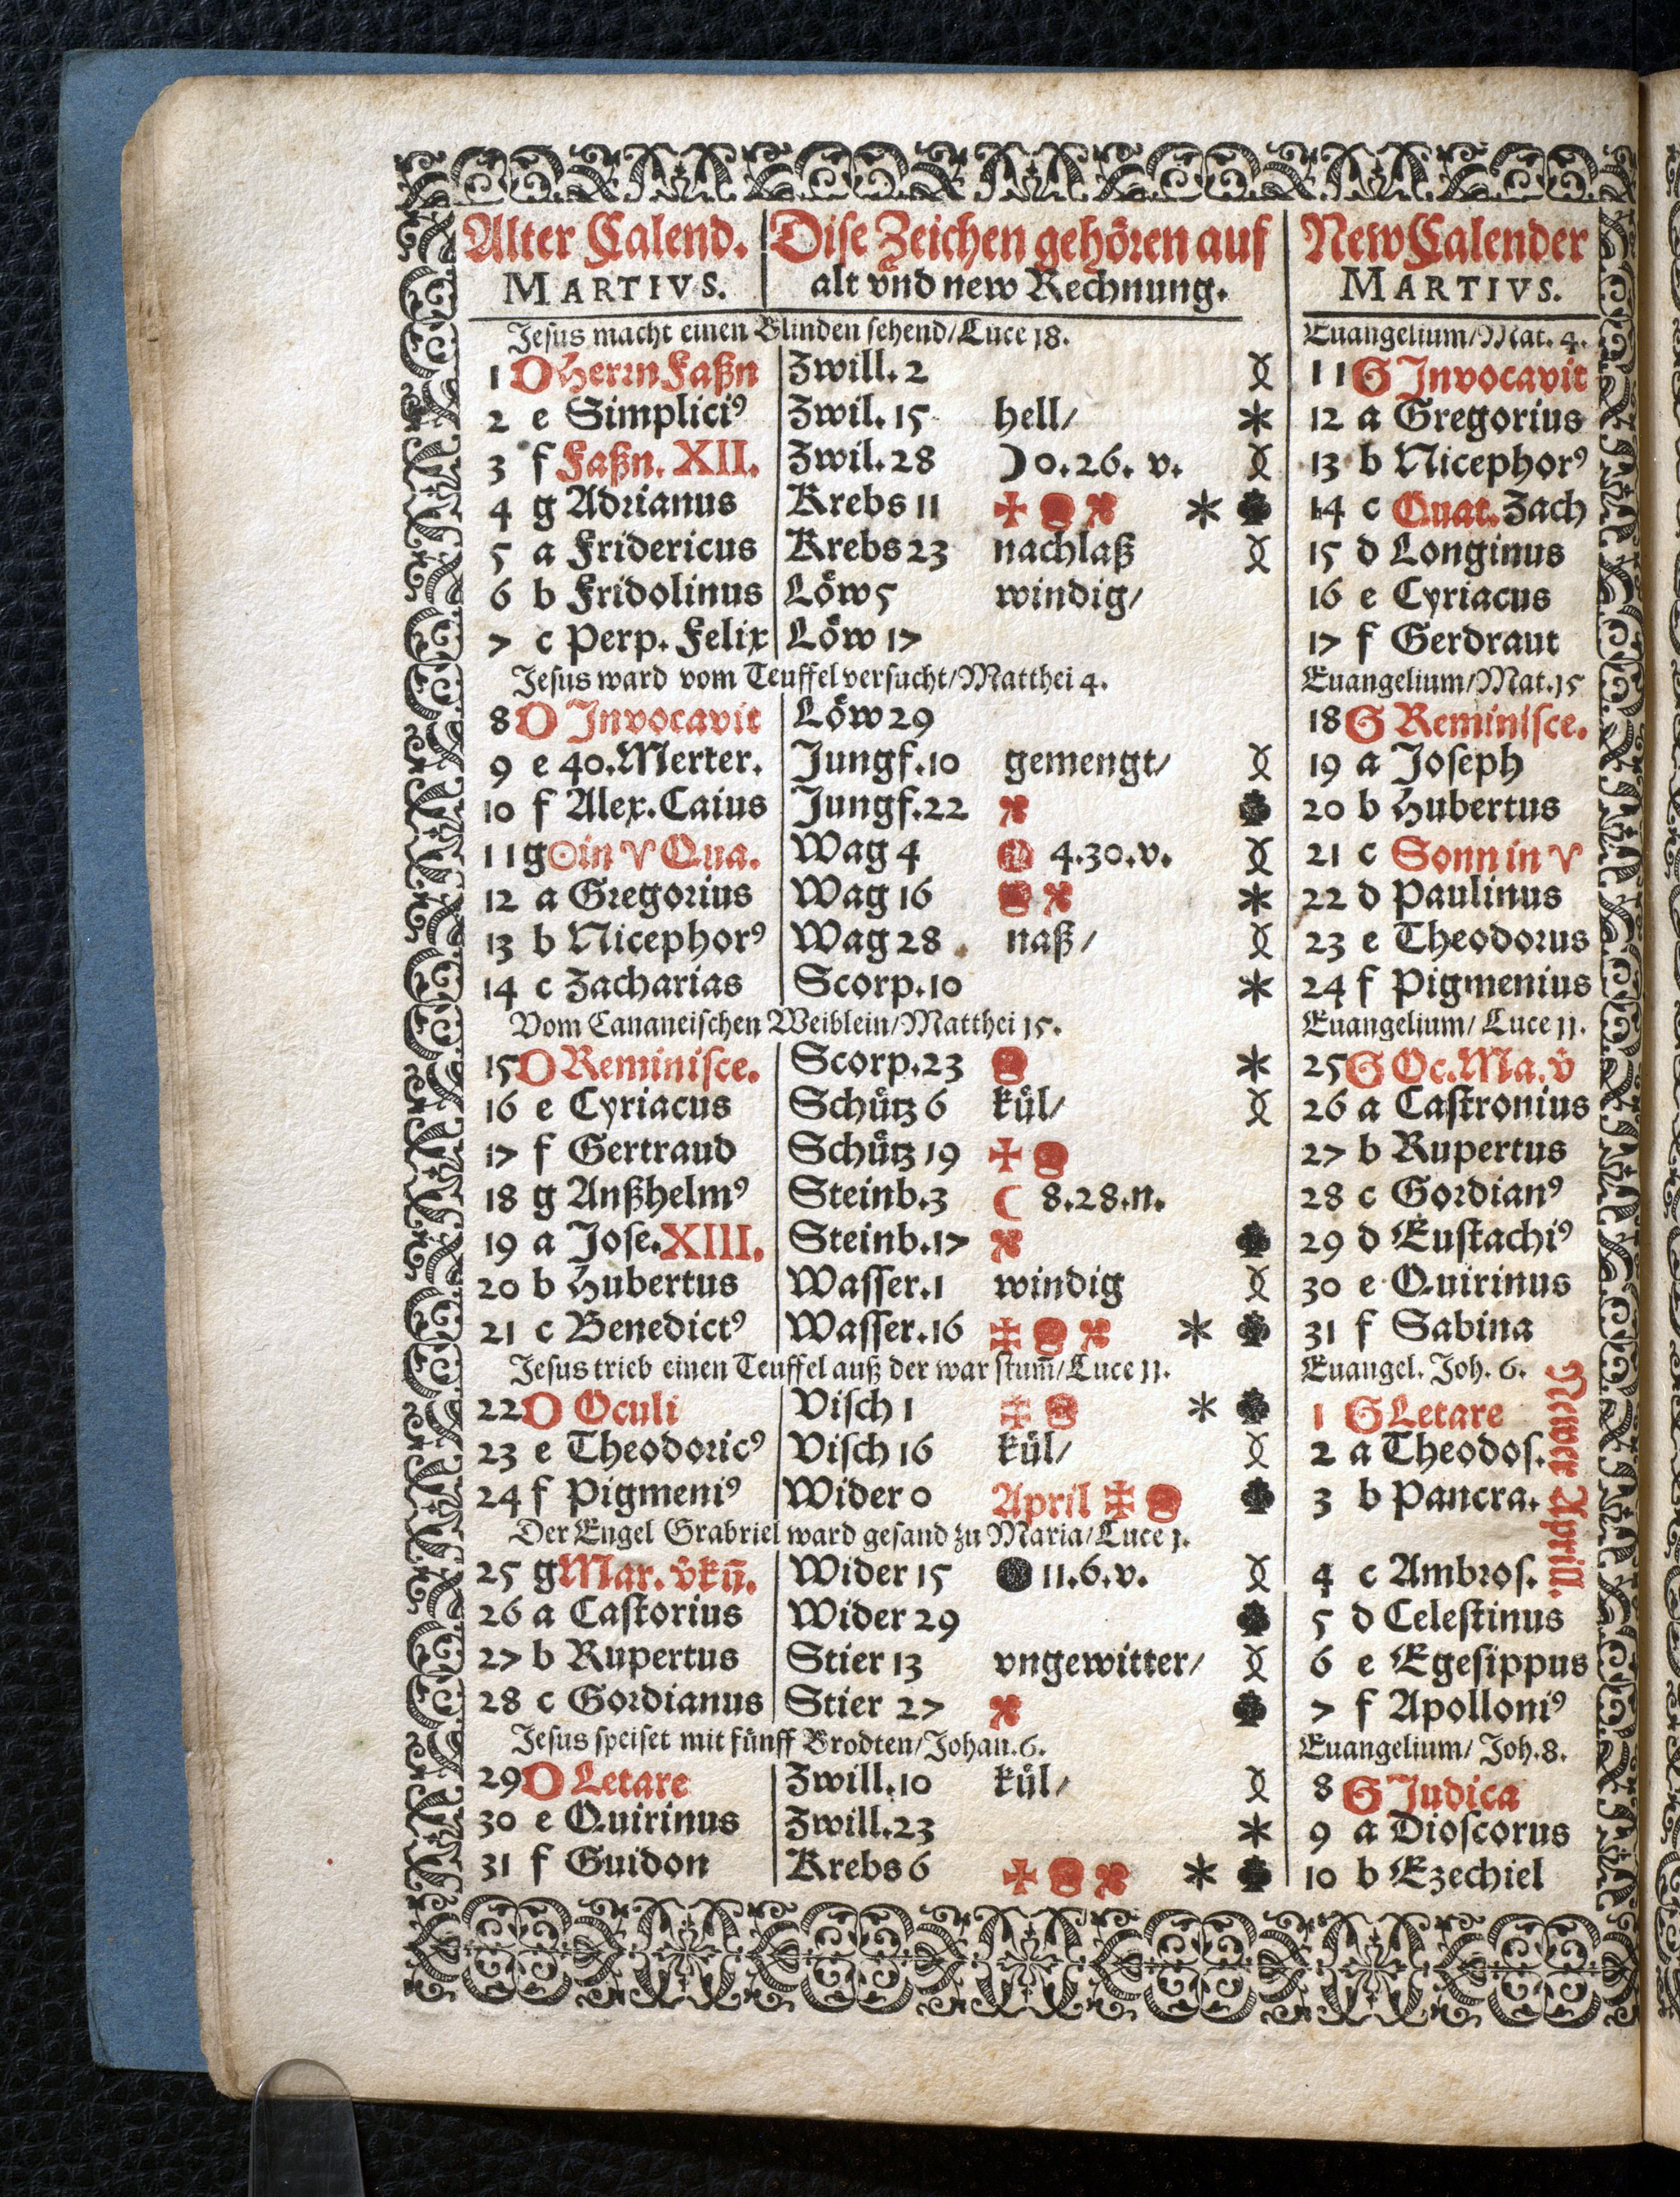 Alter Calend. Dise Zeichen gehören auf New Calender
MARTIVS. alt vnd new Rechnung. MARTIVS.
Jesus macht einen Blinden sehend/Luce 18. Euangelium/Mat. 4.
1 D Herrn Faßn Zwill. 2 11 G Invocavit
2 e Simpliciꝰ Zwil. 15 hell/ * 12 a Gregorius
3 f Faßn. XII. Zwil. 28 ☽ 0.26. v. 13 b Nicephorꝰ
4 g Adrianus Krebs 11 * 14 c Quat. Zach
5 a Fridericus Krebs 23 nachlaß 15 d Longinus
6 b Fridolinus Löw 5 windig/ 16 e Cyriacus
7 c Perp. Felix Löw 17 17 f Gerdraut
Jesus ward vom Teuffel versucht/Matthei 4. Euangelium/Mat.15
8 D Invocavit Löw 29 18 G Reminisce.
9 e 40.Merter. Jungf.10 gemengt/ 19 a Joseph
10 f Alex.Caius Jungf.22 20 b Hubertus
11 g ☉in ♈ Qua. Wag 4 4.30.v. 21 c Sonn in ♈
12 a Gregorius Wag 16 * 22 d Paulinus
13 b Nicephorꝰ Wag 28 naß/ 23 e Theodorus
14 c Zacharias Scorp.10 * 24 f Pigmenius
Vom Cananeischen Weiblein/Matthei 15. Euangelium/ Luce 11.
15 D Reminisce. Scorp.23 * 25 G Oc.Ma.v̂
16 e Cyriacus Schütz 6 kül/ 26 a Castronius
17 f Gertraud Schütz 19 27 b Rupertus
18 g Anßhelmꝰ Steinb.3 ☾ 8.28.n. 28 c Gordianꝰ
19 a Jose.XIII. Steinb.17 29 d Eustachiꝰ
20 b Hubertus Wasser.1 windig 30 e Quirinus
21 c Benedictꝰ Wasser.16 * 31 f Sabina
Jesus trieb einen Teuffel auß der war stum̄/Luce 11. Euangel. Joh. 6.
22 D Oculi Visch 1 * 1 G Letare
23 e Theodoricꝰ Visch 16 kül/ 2 a Theodos.
24 f Pigmeniꝰ Wider 0 April 3 b Pancra.
Newer Aprill.
Der Engel Grabriel ward gesand zu Maria/Luce 1.
25 g Mar. v̂kün̄. Wider 15 ● 11.6.v. 4 c Ambros.
26 a Castorius Wider 29 5 d Celestinus
27 b Rupertus Stier 13 vngewitter/ 6 e Egesippus
28 c Gordianus Stier 27 7 f Apolloniꝰ
Jesus speiset mit fünff Brodten/Johan.6. Euangelium/ Joh.8.
29 D Letare Zwill.10 kül/ 8 G Judica
30 e Quirinus Zwill.23 * 9 a Dioscorus
31 f Guidon Krebs 6 * 10 b Ezechiel